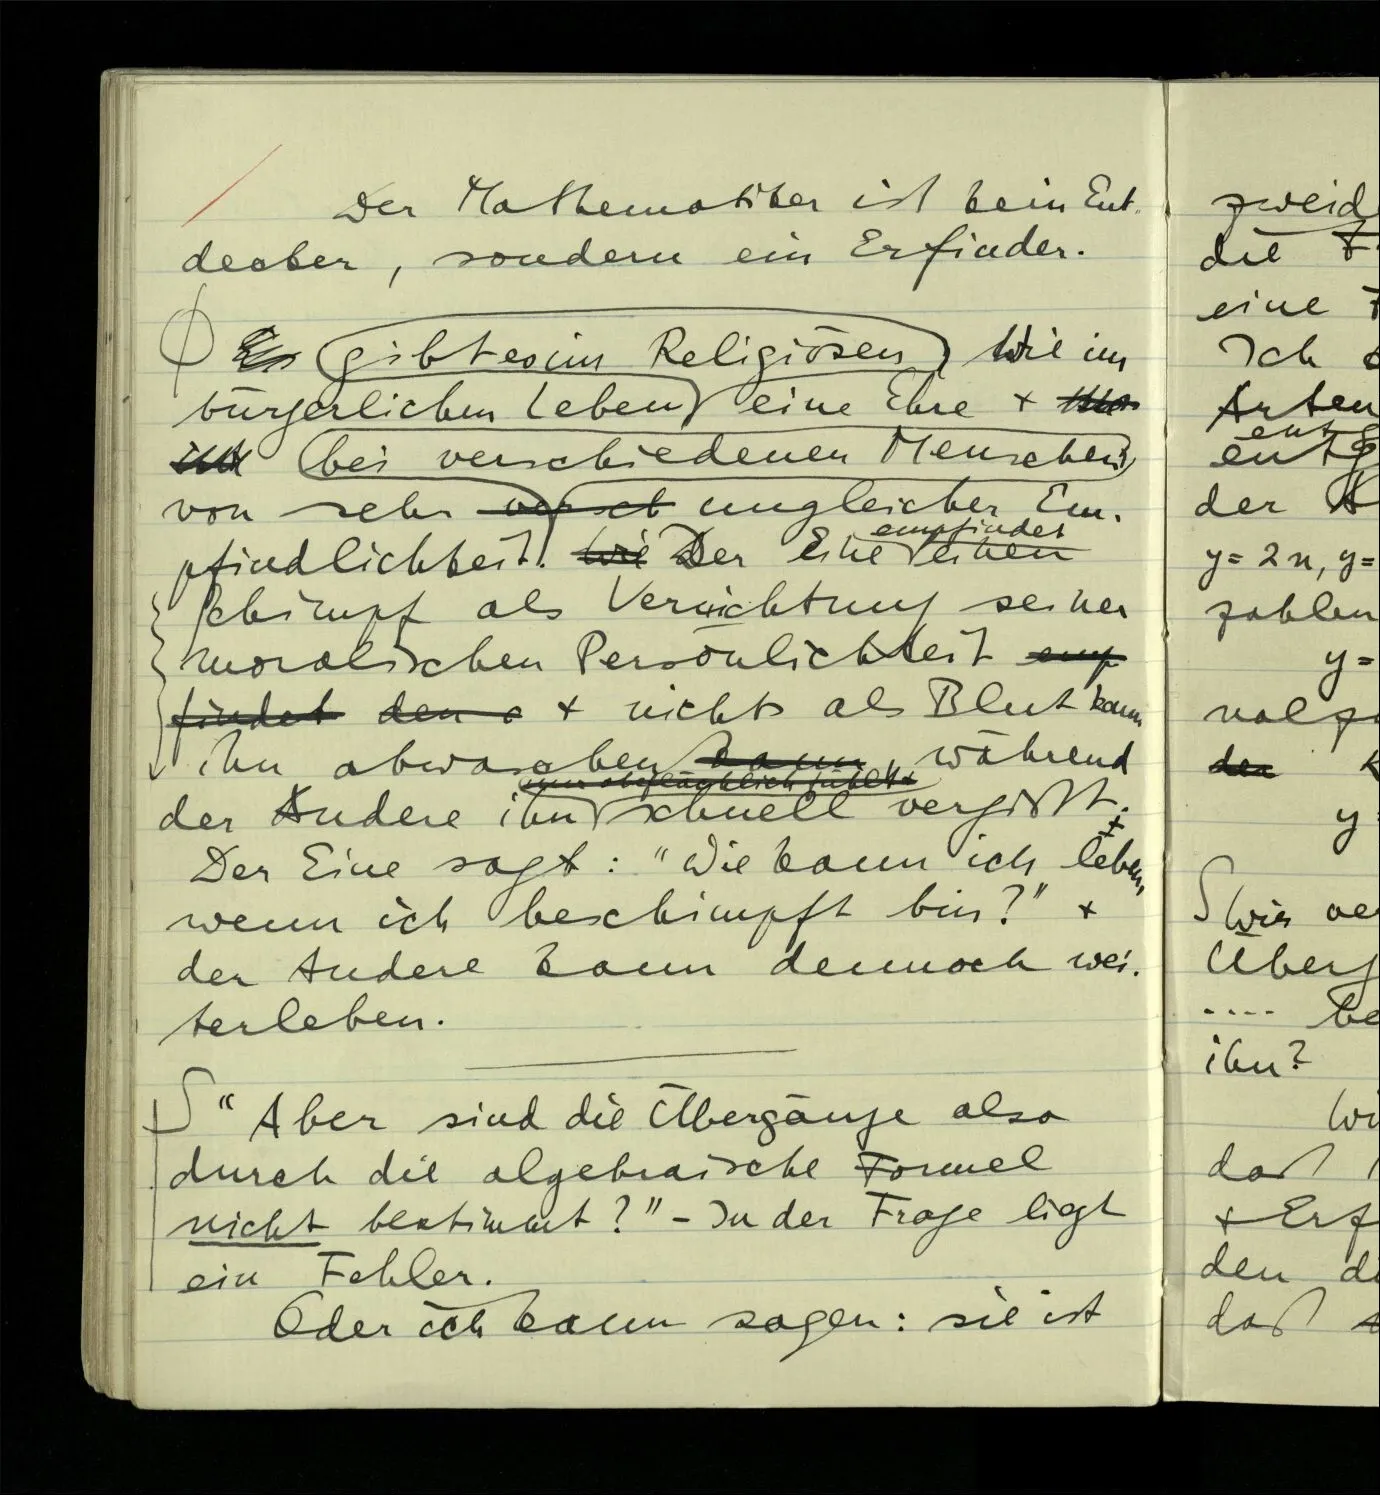 Der Mathematiker ist kein Ent-
decker, sondern ein Erfinder.
Es gibt es im Religiösen Wie im
bürgerlichen Leben eine Ehre +
bei verschiedenen Menschen
von sehr versch ungleicher Em-
pfindlichkeit. Wie Der Eine einen
empfindet
Schimpf als Vernichtung seiner
moralischen Persönlichkeit emp
findet den + nichts als Blut kann
ihn abwaschen kann, während
nur oberflächlich fühlt +
der Andere ihn schnell vergißt.
Der Eine sagt: "Wie kann ich leben
wenn ich beschimpft bin?" +
der Andere kann dennoch wei-
terleben.
"Aber sind die Übergänge also
durch die algebraische Formel
nicht bestimmt?" – In der Frage ligt
ein Fehler.
Oder ich kann sagen: sie ist
zweid
die F
eine F
Ich
Arten
entg
der
y = 2n, y =
zahlen
y =
volzu
den
y
Wie ver
Überg
.... be
ihn?
Wi
daß
+ Erf
den di
daß